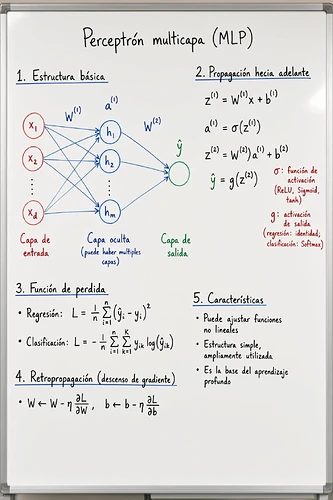 Perceptrón multicapa (MLP)
1. Estructura básica
W⁽¹⁾
a⁽¹⁾
W⁽²⁾
ŷ
x₁
x₂
⋮
x_d
h₁
h₂
⋮
hₘ
Capa de
entrada
Capa oculta
(puede haber multiples
capas)
Capa de
salida
2. Propagación hecia adelante
z⁽¹⁾ = W⁽¹⁾x + b⁽¹⁾
a⁽¹⁾ = σ(z⁽¹⁾)
z⁽²⁾ = W⁽²⁾)a⁽¹⁾ + b⁽²⁾
ŷ = g(z⁽²⁾)
σ: función de
activación
(ReLU, Sigmoid,
tanh)
g: activación
de salida
(regresión: identidad;
clasificación: Softmax)
3. Función de perdida
• Regresión: L = 1/n Σᵢ₌₁ⁿ (ŷᵢ - yᵢ)²
• Clasificación: L = - 1/n Σᵢ₌₁ⁿ Σₖ₌₁ᴷ yᵢₖ log(ŷᵢₖ)
4. Retropropagación (descenso de gradiente)
• W ← W - η ∂L/∂W , b ← b - η ∂L/∂b
5. Características
• Puede ajustar funciones
no lineales
• Estructura simple,
ampliamente utilizada
• Es la base del aprendizaje
profundo